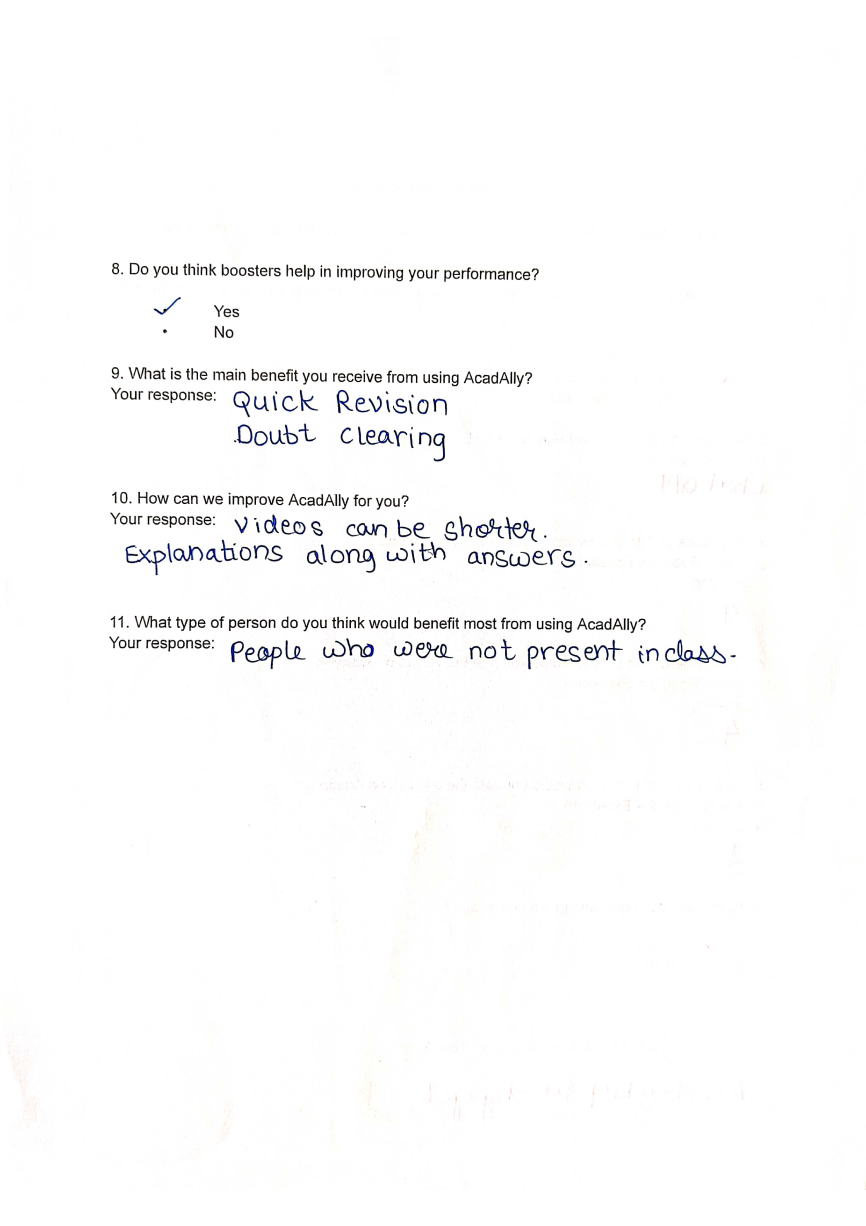 8. Do you think boosters help in improving your performance?
✓ Yes
• No
9. What is the main benefit you receive from using AcadAlly?
Your response: Quick Revision
Doubt clearing
10. How can we improve AcadAlly for you?
Your response: Videos can be shorter.
Explanations along with answers.
11. What type of person do you think would benefit most from using AcadAlly?
Your response: People who were not present in class.